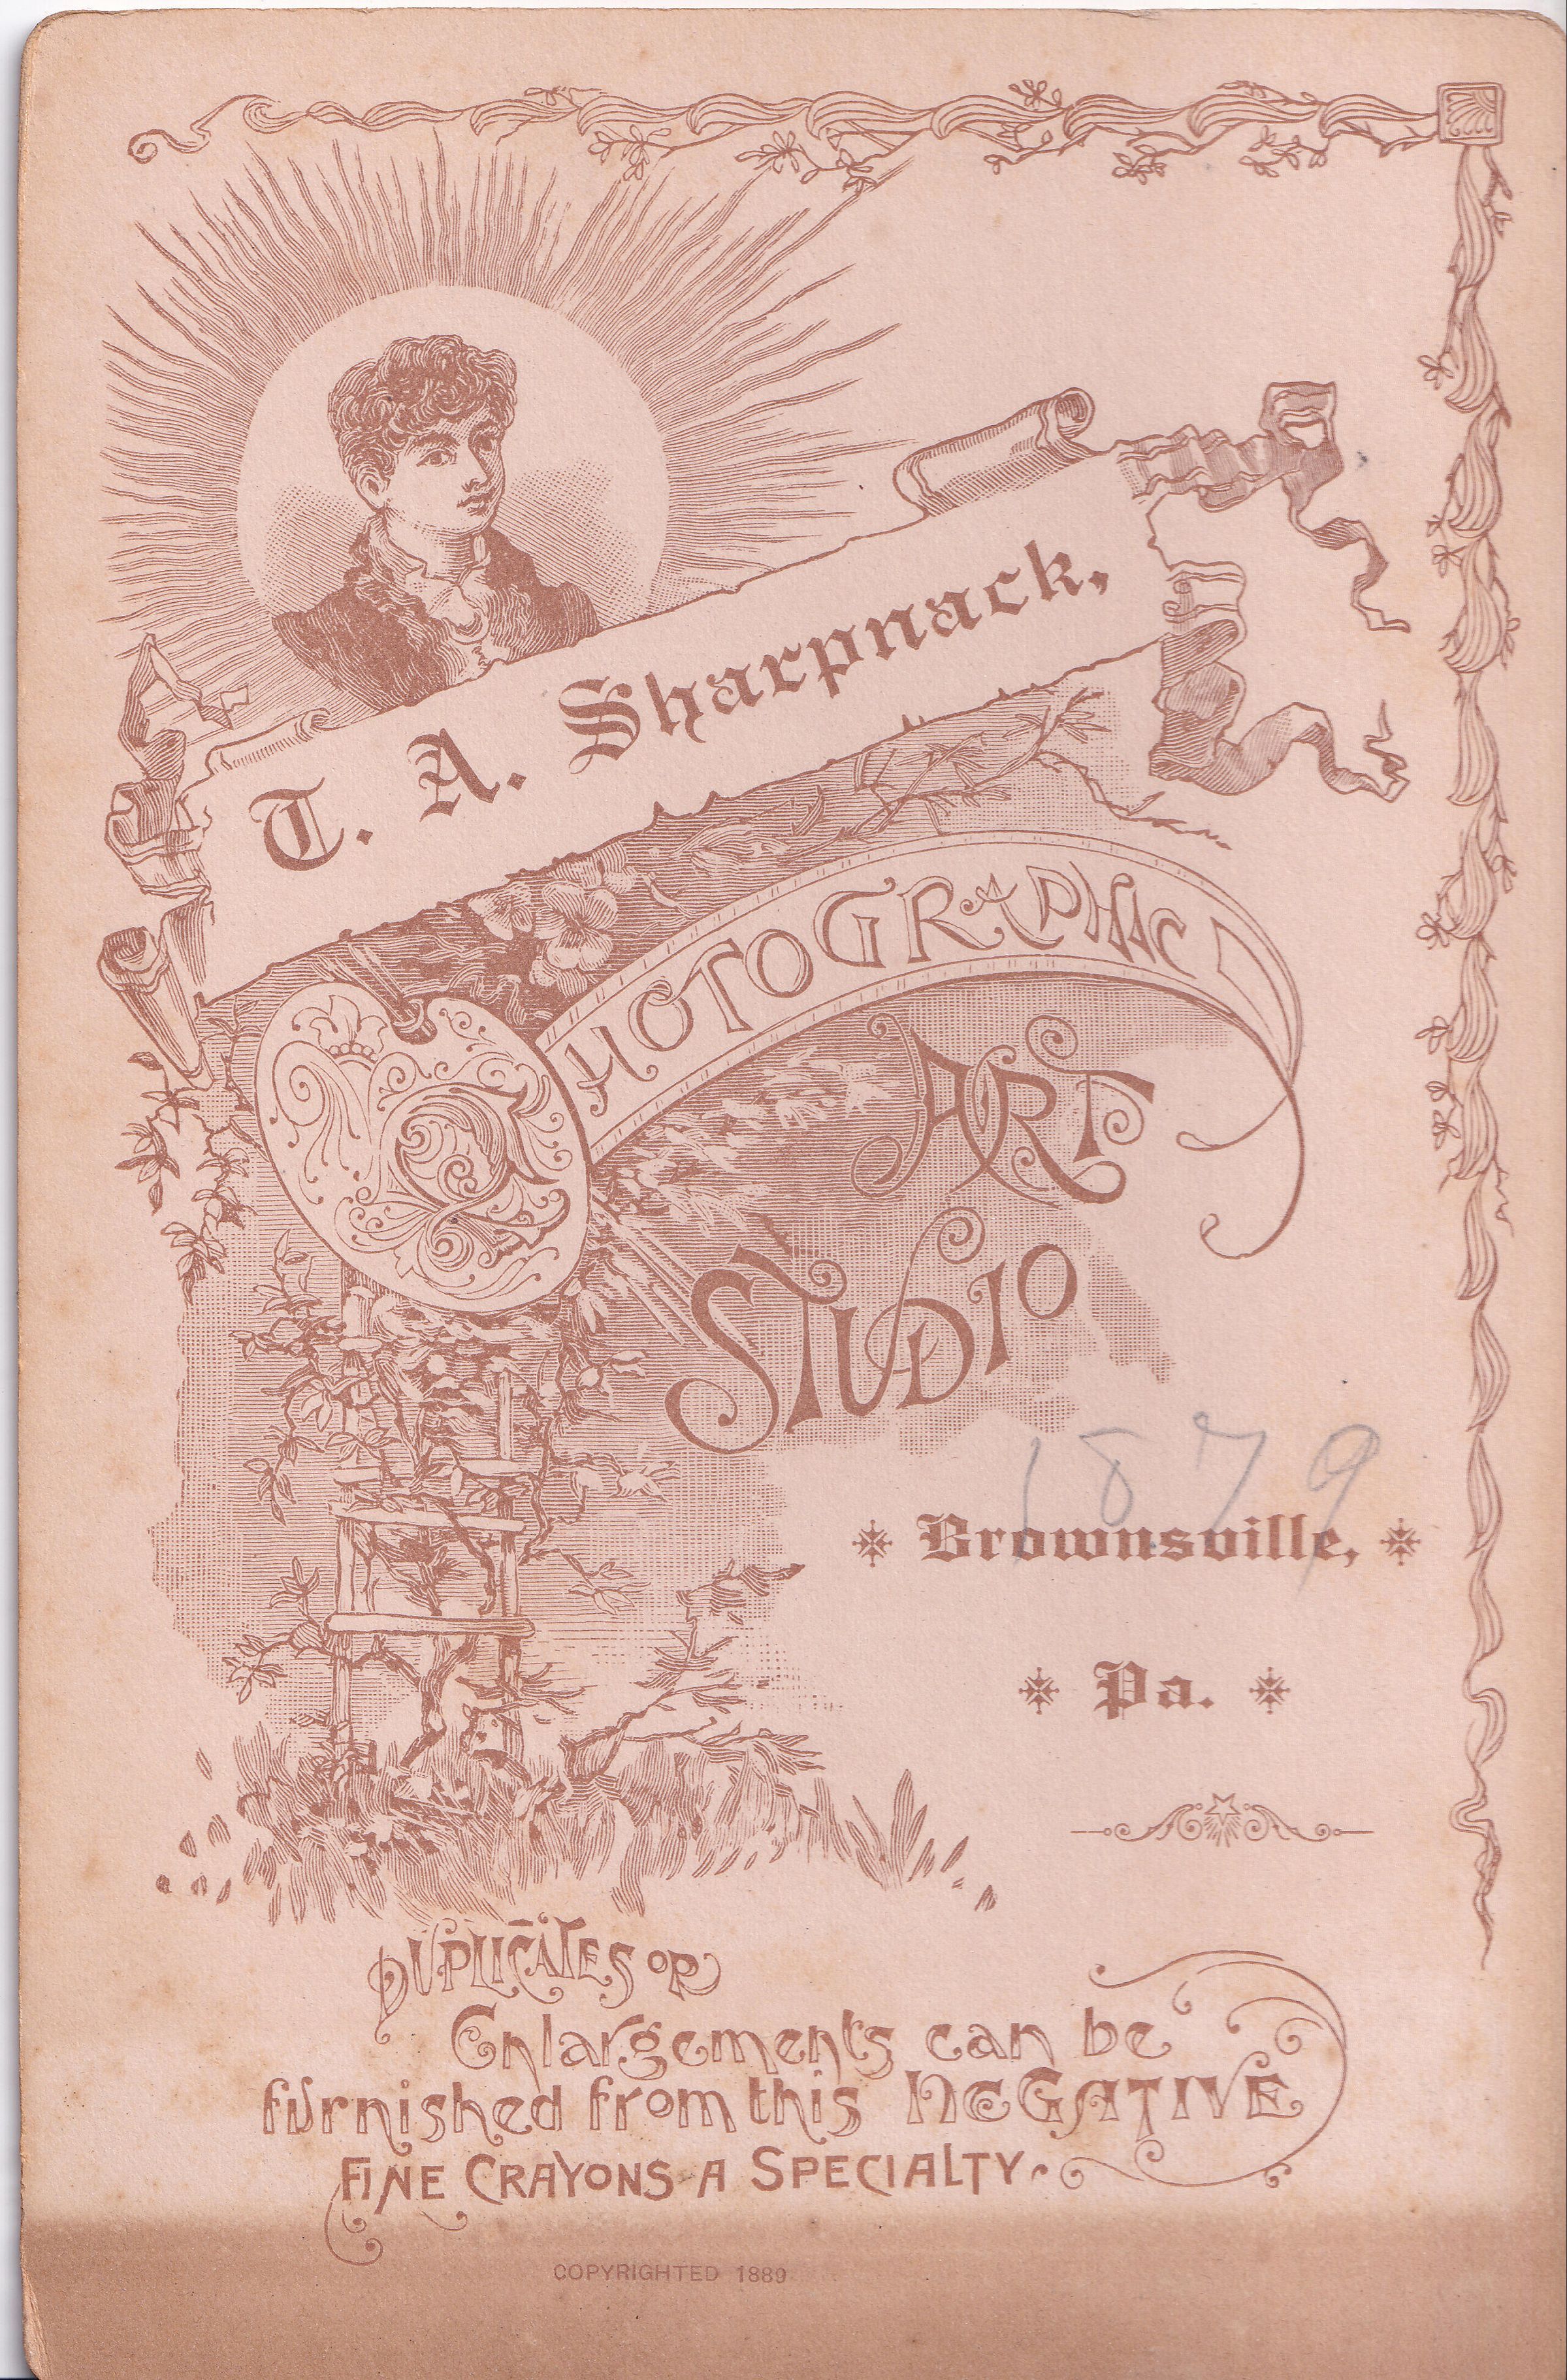 T. A. Sharpnack,
PHOTOGRAPHIC
ART
STUDIO
1879
Brownsville,
Pa.
DUPLICATES OR
Enlargements can be
furnished from this NEGATIVE
FINE CRAYONS A SPECIALTY.
COPYRIGHTED 1889